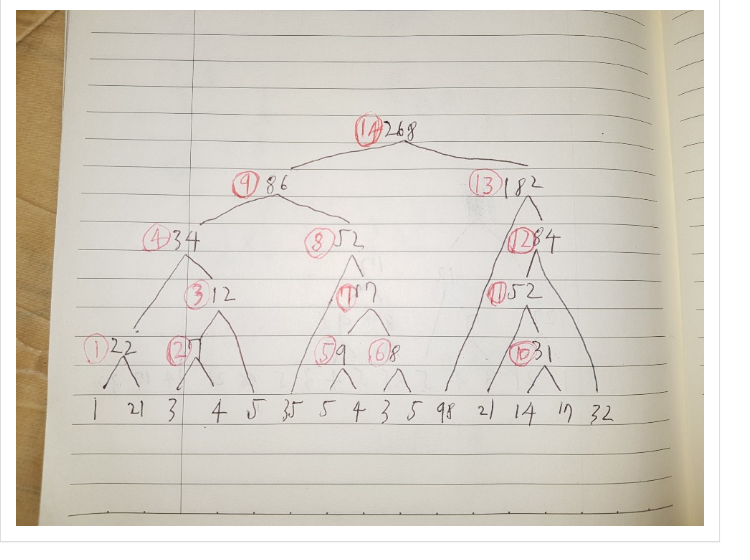 ⑭ 268
⑨ 86 ⑬ 182
④ 34 ⑧ 52 ⑫ 84
③ 12 ⑦ 17 ⑪ 52
① 22 ② 7 ⑤ 9 ⑥ 8 ⑩ 31
1 21 3 4 5 35 5 4 3 5 98 21 14 17 32